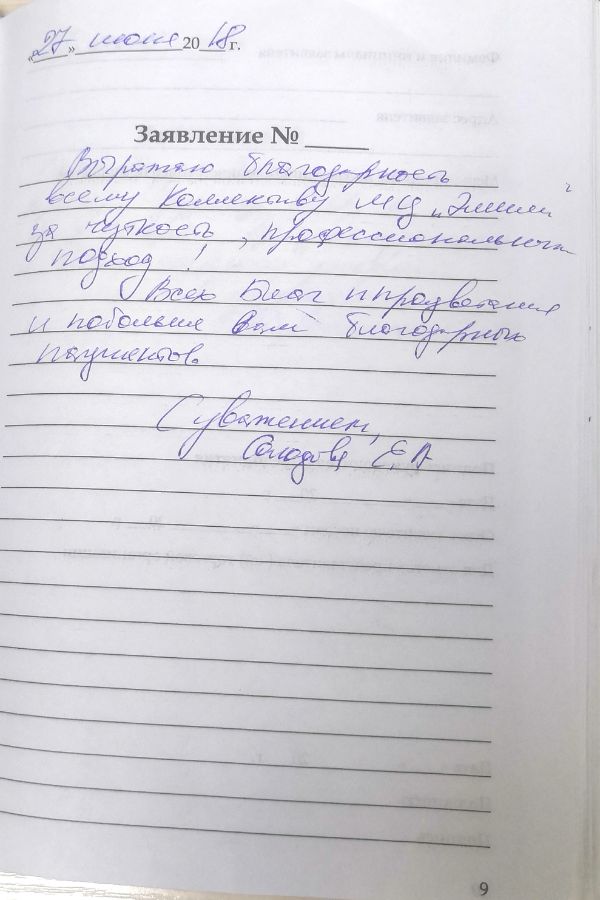 «27» июня 2018 г.
Заявление № ____
Выражаю благодарность
всему коллективу МЦ „Эмили"
за чуткость, профессиональный
подход!
Всех Благ и процветания
и побольше Вам благодарных
пациентов.
С уважением,
Е.А
9